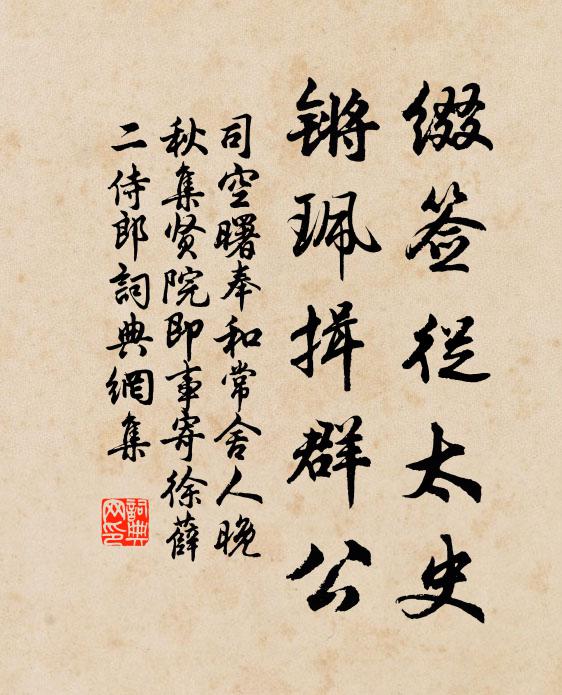 缀签从太史
锵珮揖群公
司空曙奉和常舍人晚
秋集贤院即事寄徐薛
二侍郎詞典網集
詞典
网印